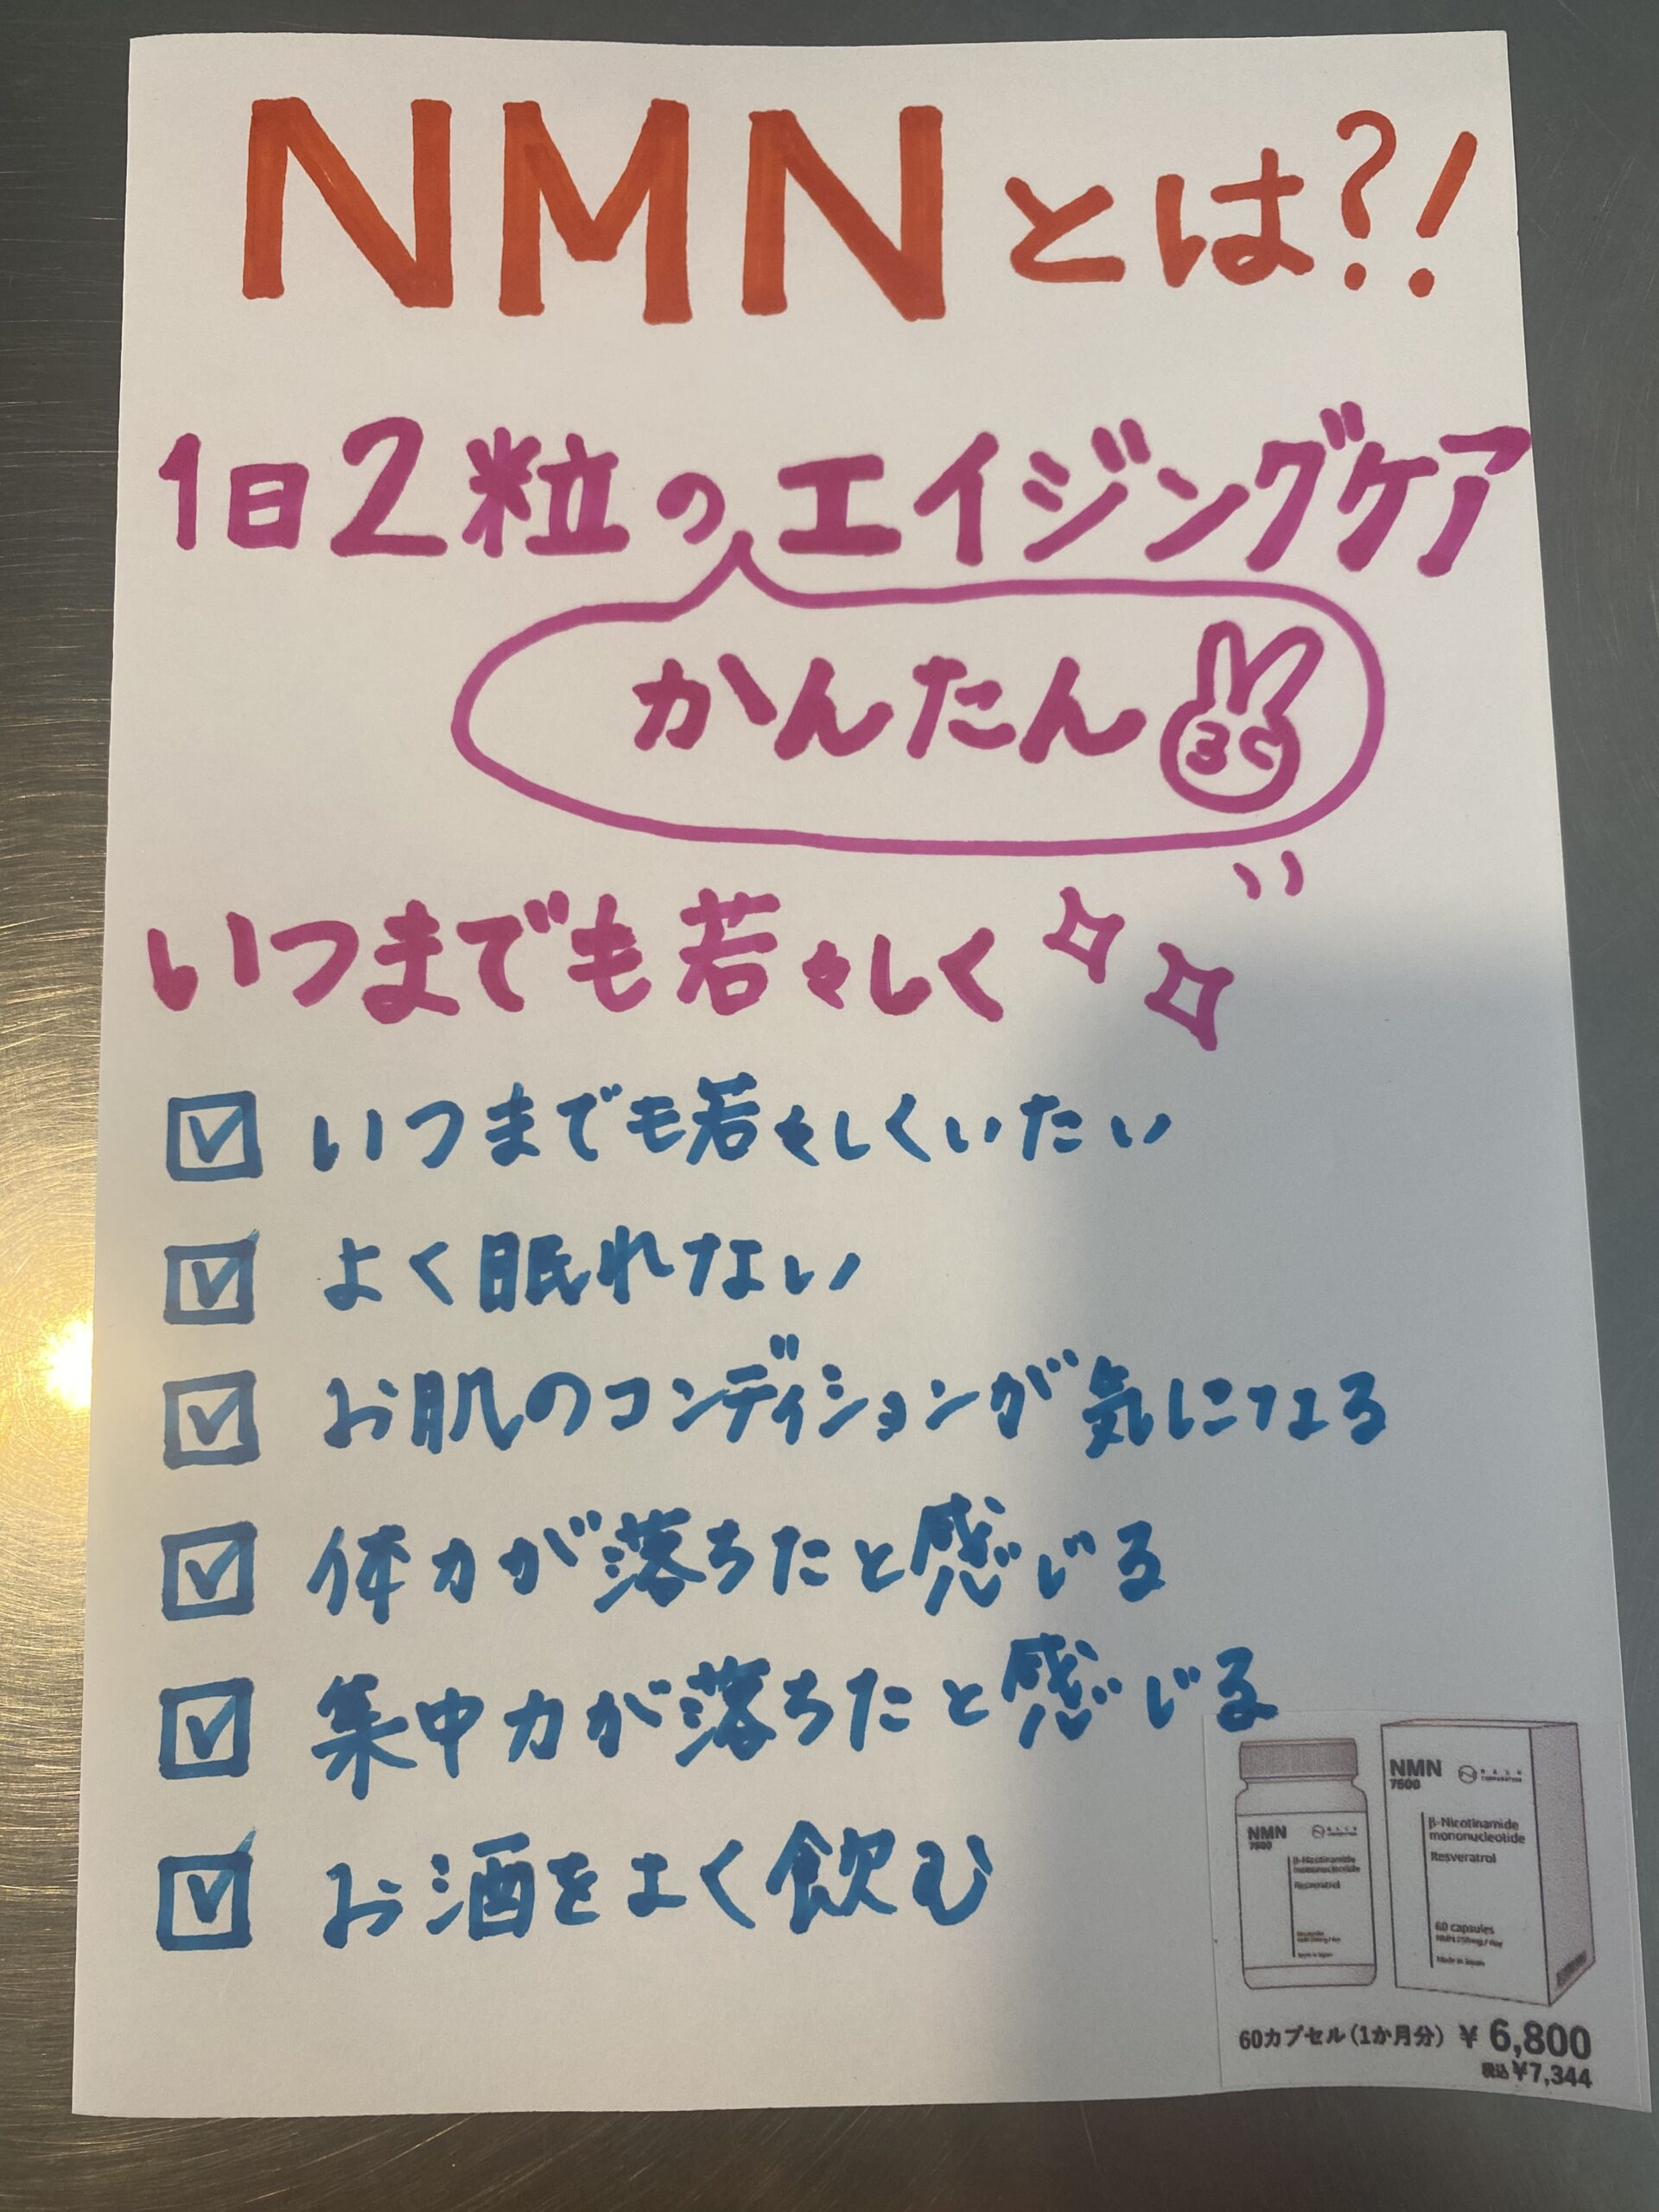 NMNとは?!
1日2粒のエイジングケア
かんたん
いつまでも若々しく
いつまでも若々しくいたい
よく眠れない
お肌のコンディションが気になる
体力が落ちたと感じる
集中力が落ちたと感じる
お酒をよく飲む
NMN
7500
β-Nicotinamide
mononucleotide
Resveratrol
NMN
7500
CORPORATION
β-Nicotinamide
mononucleotide
Resveratrol
60 capsules
NMN 250mg / day
Made in Japan
60カプセル(1か月分) ¥6,800
税込¥7,344